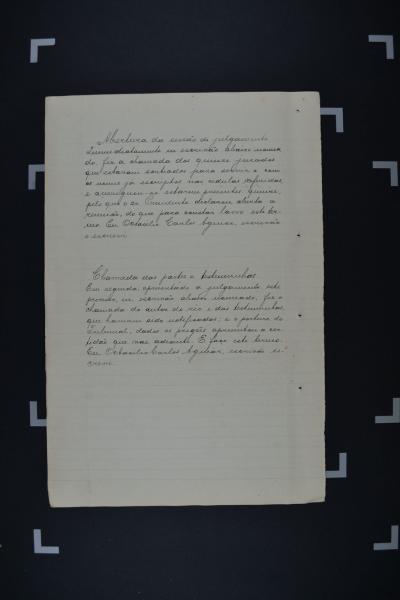 Abertura da sessão de julgamento
Immediatamente eu escrivão abaixo nomea
do, fiz a chamada dos quinze jurados
que estavam sorteados para servir e com
os nomes já escriptos nas cedulas
e averiguou-se estarem presentes quinze,
pelo que o Sr. Presidente declarou aberta a
reunião, do que para constar lavro este ter-
mo. Eu Octavilio Carlos Aguiar, escrivão
o escrevi.
Chamada das partes e testemunhas.
Em seguida, apresentado a julgamento este
processo, eu, escrivão abaixo nomeado, fiz a
chamada do autor do réo e das testemunhas,
que haviam sido notificadas; e o porteiro do
Tribunal, dados os pregões apresentou a cer-
tidão que vae adiante. E faço este termo.
Eu Octavilio Carlos Aguiar, escrivão es-
crevi.